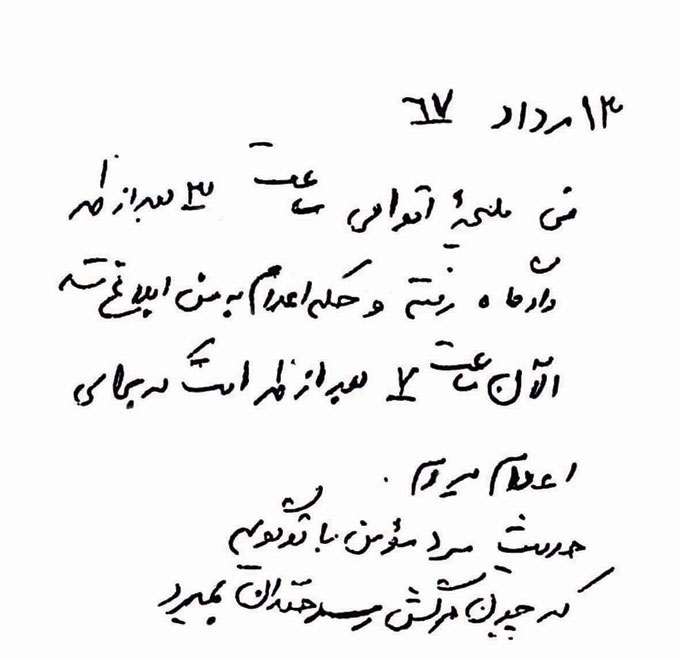 ۱۳ مرداد ۶۷
من ملیحهٔ اقوامی ساعت ۳ بعد از ظهر
دادگاه رفته و حکم اعدام به من ابلاغ شد
الآن ساعت ۷ بعد از ظهر است که برای
اعدام میروم.
حدیث مرد مؤمن با تو گویم
که چون مرگش رسد خندان بمیرد